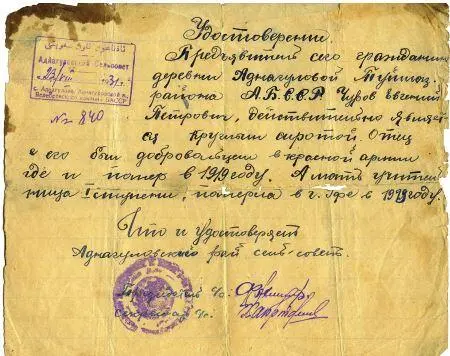 Удостоверение
Предъявитель сего гражданин
деревни Аднагуловой Туймаз.
района А.Б.С.С.Р. Чуров Евгений
Петрович, действительно являет
ся круглым сиротой. Отец
его был добровольцем в красной армии
где и помер в 1919 году. А мать учитель
ница I ступени, померла в г. Уфе в 1919 году.
Что и удостоверяет
Аднагуловский сельсовет.
Аднагуловский Сельсовет
№ 840
Председатель с/с.
Секретарь с/с.